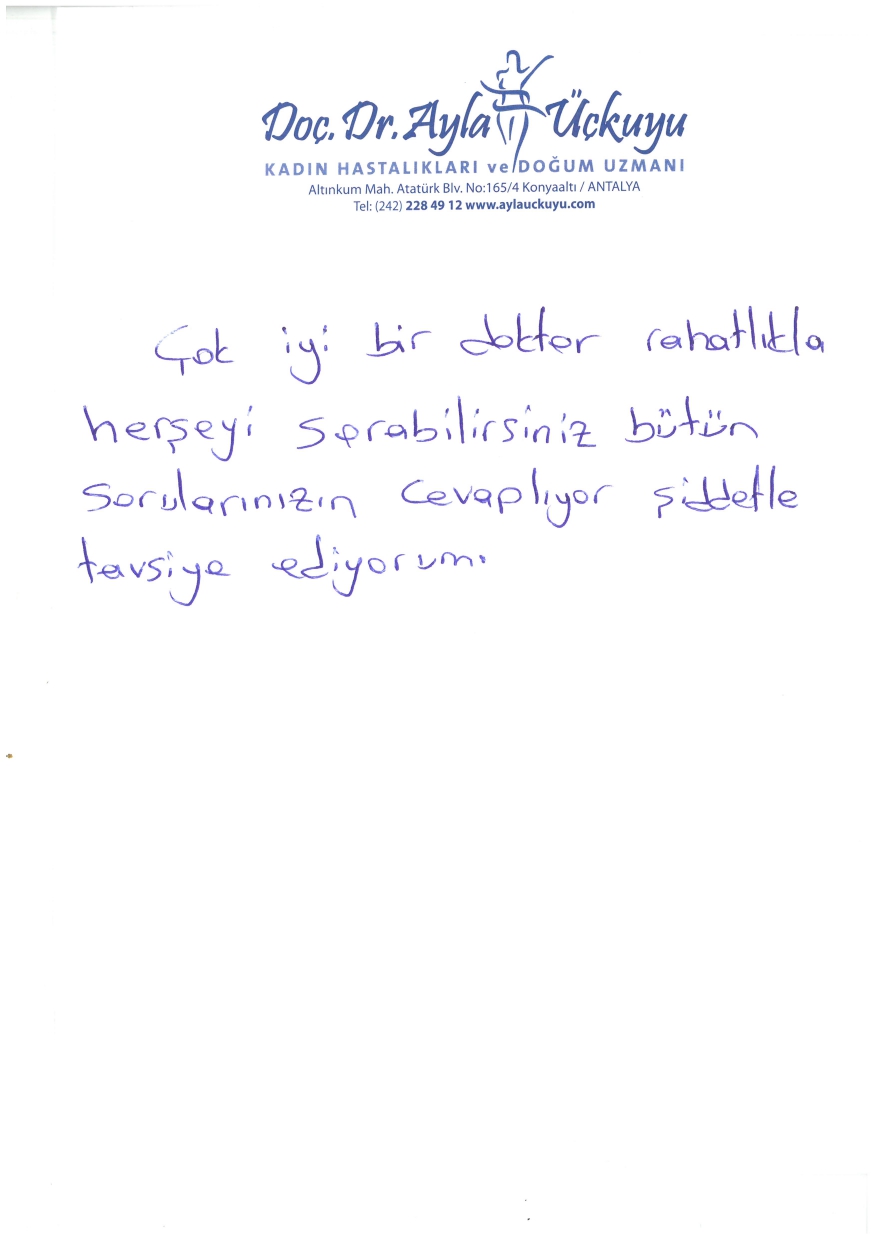 Doç. Dr. Ayla Üçkuyu
KADIN HASTALIKLARI ve DOĞUM UZMANI
Altınkum Mah. Atatürk Blv. No:165/4 Konyaaltı / ANTALYA
Tel: (242) 228 49 12 www.aylauckuyu.com
Çok iyi bir doktor rahatlıkla
herşeyi sorabilirsiniz bütün
sorularınızın cevaplıyor şiddetle
tavsiye ediyorum.